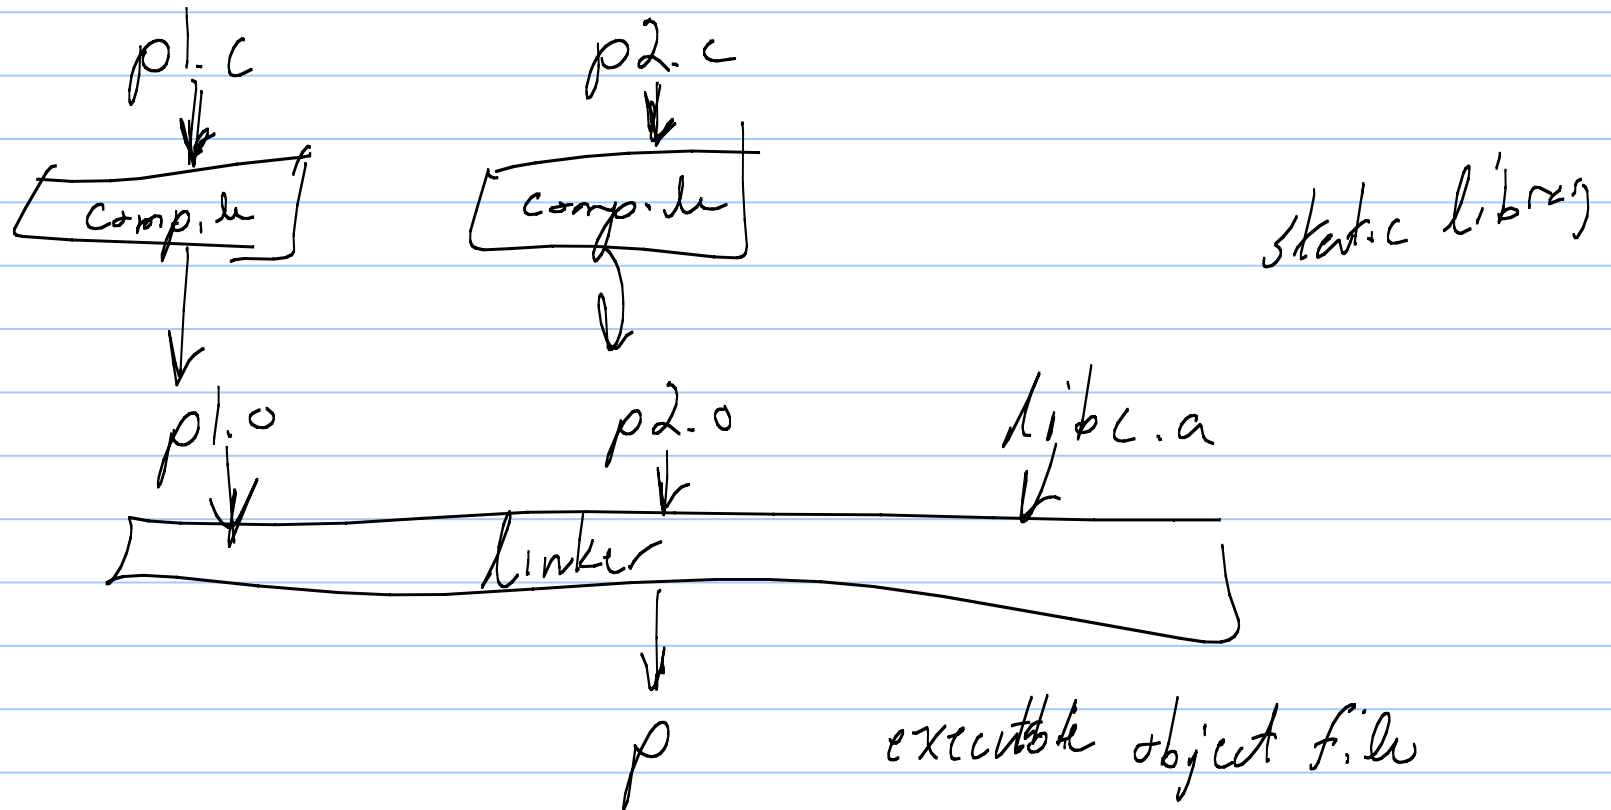 p1.c p2.c
compile compile
static library
p1.o p2.o libc.a
linker
p executable object file